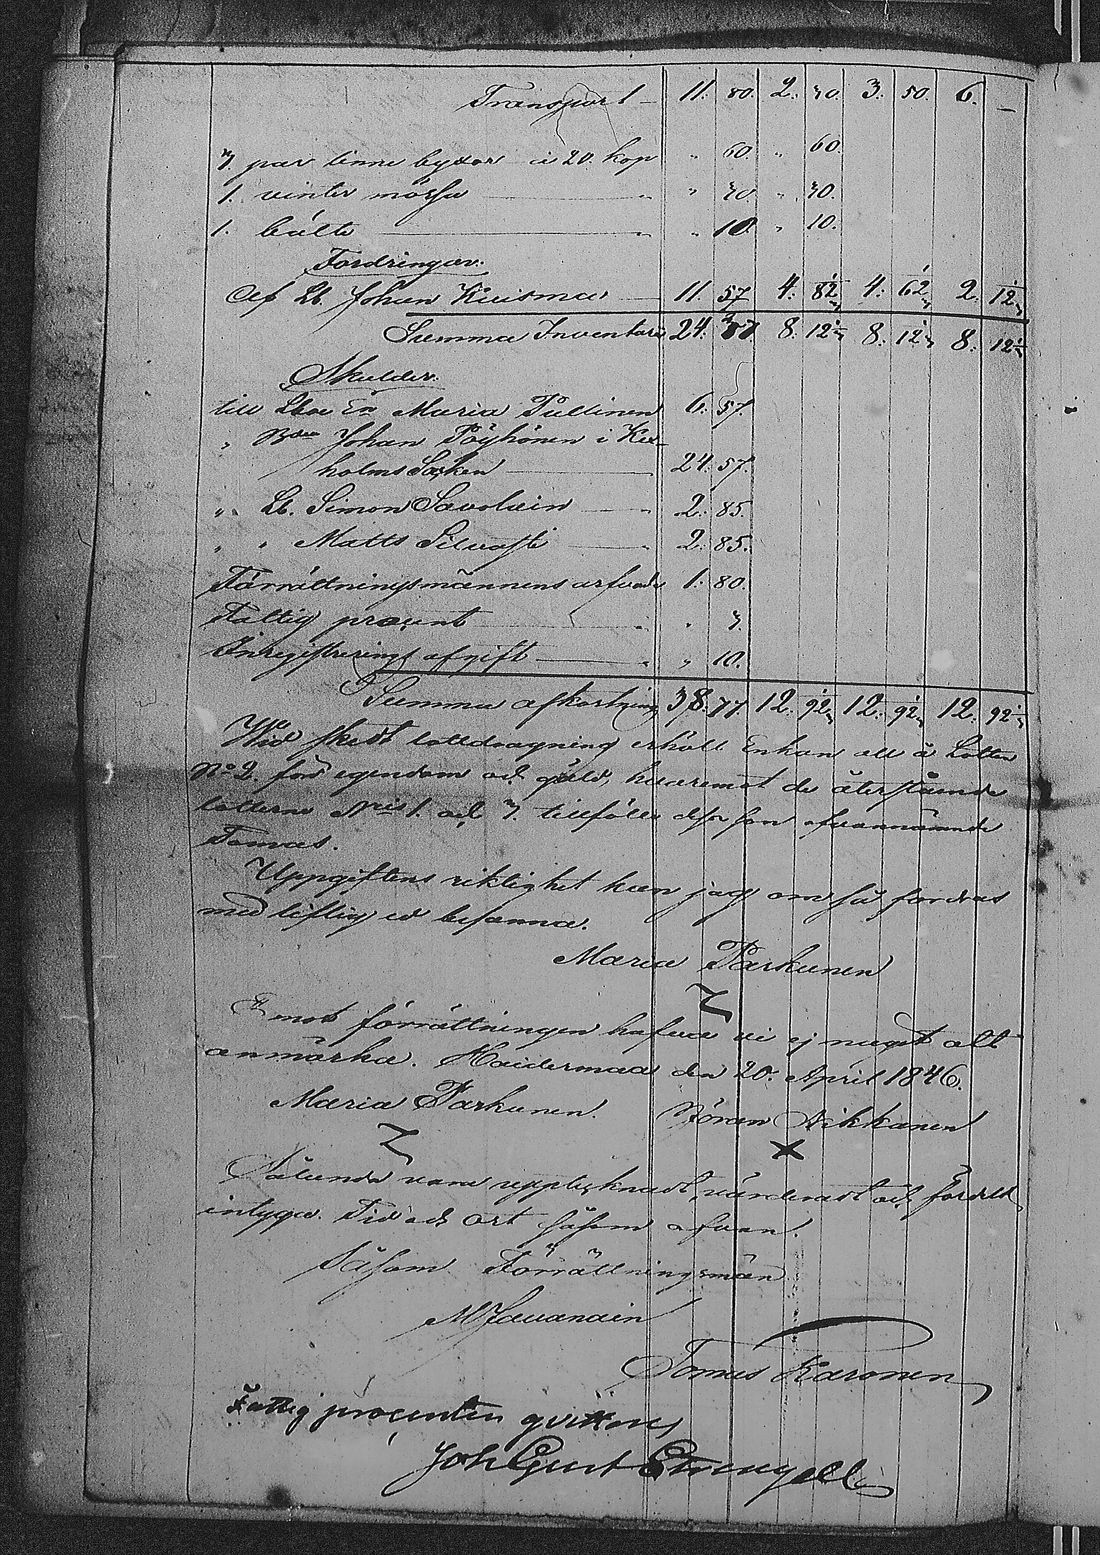 Transport 11. 80. 2. 30. 3. 50. 6. —
3. par linne byxor à 20. kop " 60. " 60.
1. vinter mössa " 30. " 30.
1. bälte " 10. " 10.
Fordringar.
Af Lb. Johan Kuisma 11. 57 4. 82 1/3 4. 62 1/3 2. 12 1/3
Summa Inventarii 24. 37 8. 12 1/3 8. 12 1/3 8. 12 1/3
Skulder.
till Lbe En Maria Pullinen 6. 57.
" Bdn Johan Pöyhönen i Kex-
holms Socken 24. 57.
" Lb. Simon Savolain 2. 85.
" " Matts Silvasti 2. 85.
Förrättningsmännens arfvode 1. 80.
Fattig procent " 3.
Inregistrerings afgift " 10.
Summa afkortning 38. 77. 12. 92 1/3 12. 92 1/3 12. 92 1/3
Wid skedt lottdragning erhöll Enkan all à Lotten
No 2. för egendom och gäld, hvaremot de återstående
lotterne Nris 1. och 3. tillföllo dess son ofvannämnde
Tomas.
Uppgiftens riktighet kan jag om så fordras
med liflig ed besanna.
Maria Parkunen
Emot förrättningen hafva vi ej något att
anmärka. Haidermaa den 20. April 1846.
Maria Parkunen. Jöran Nikkanen
Sålunda vara upptecknadt, värderadt och fördelt
intyga. Tid och Ort såsom ofvan.
Såsom Förrättningsmän
M Javanain
Tomas Karonen
Fattig procenten qvitteras
Joh Gust Strengell